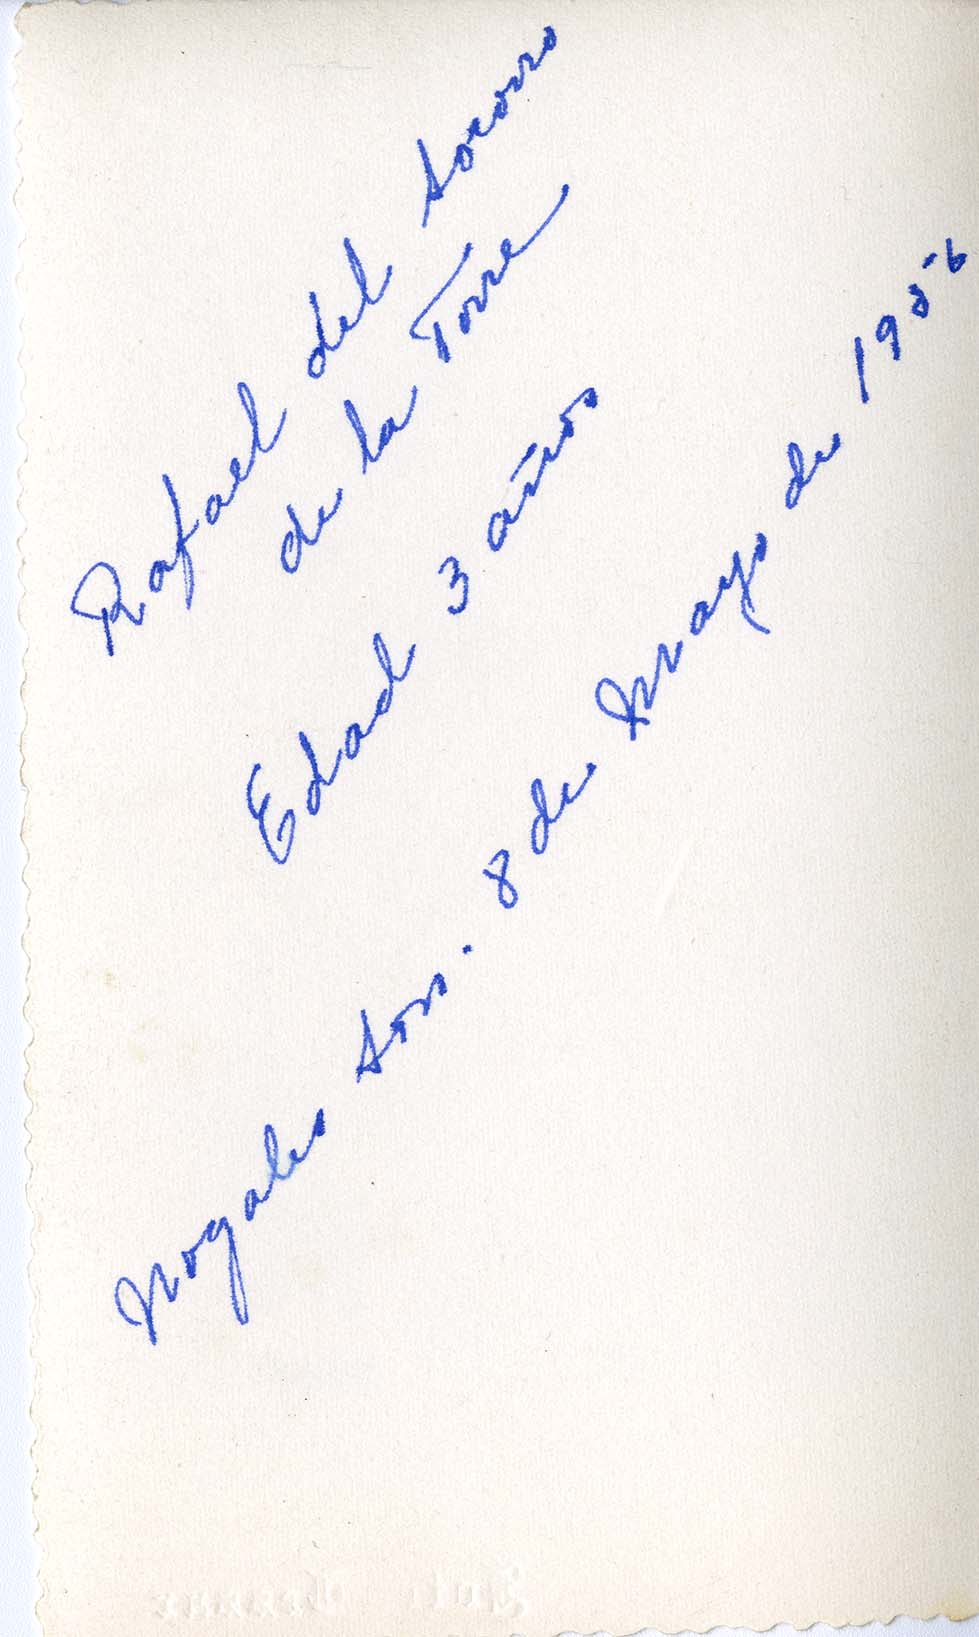 Rafael del Socorro
de la Torre
Edad 3 años
Nogales Son. 8 de Mayo de 1956